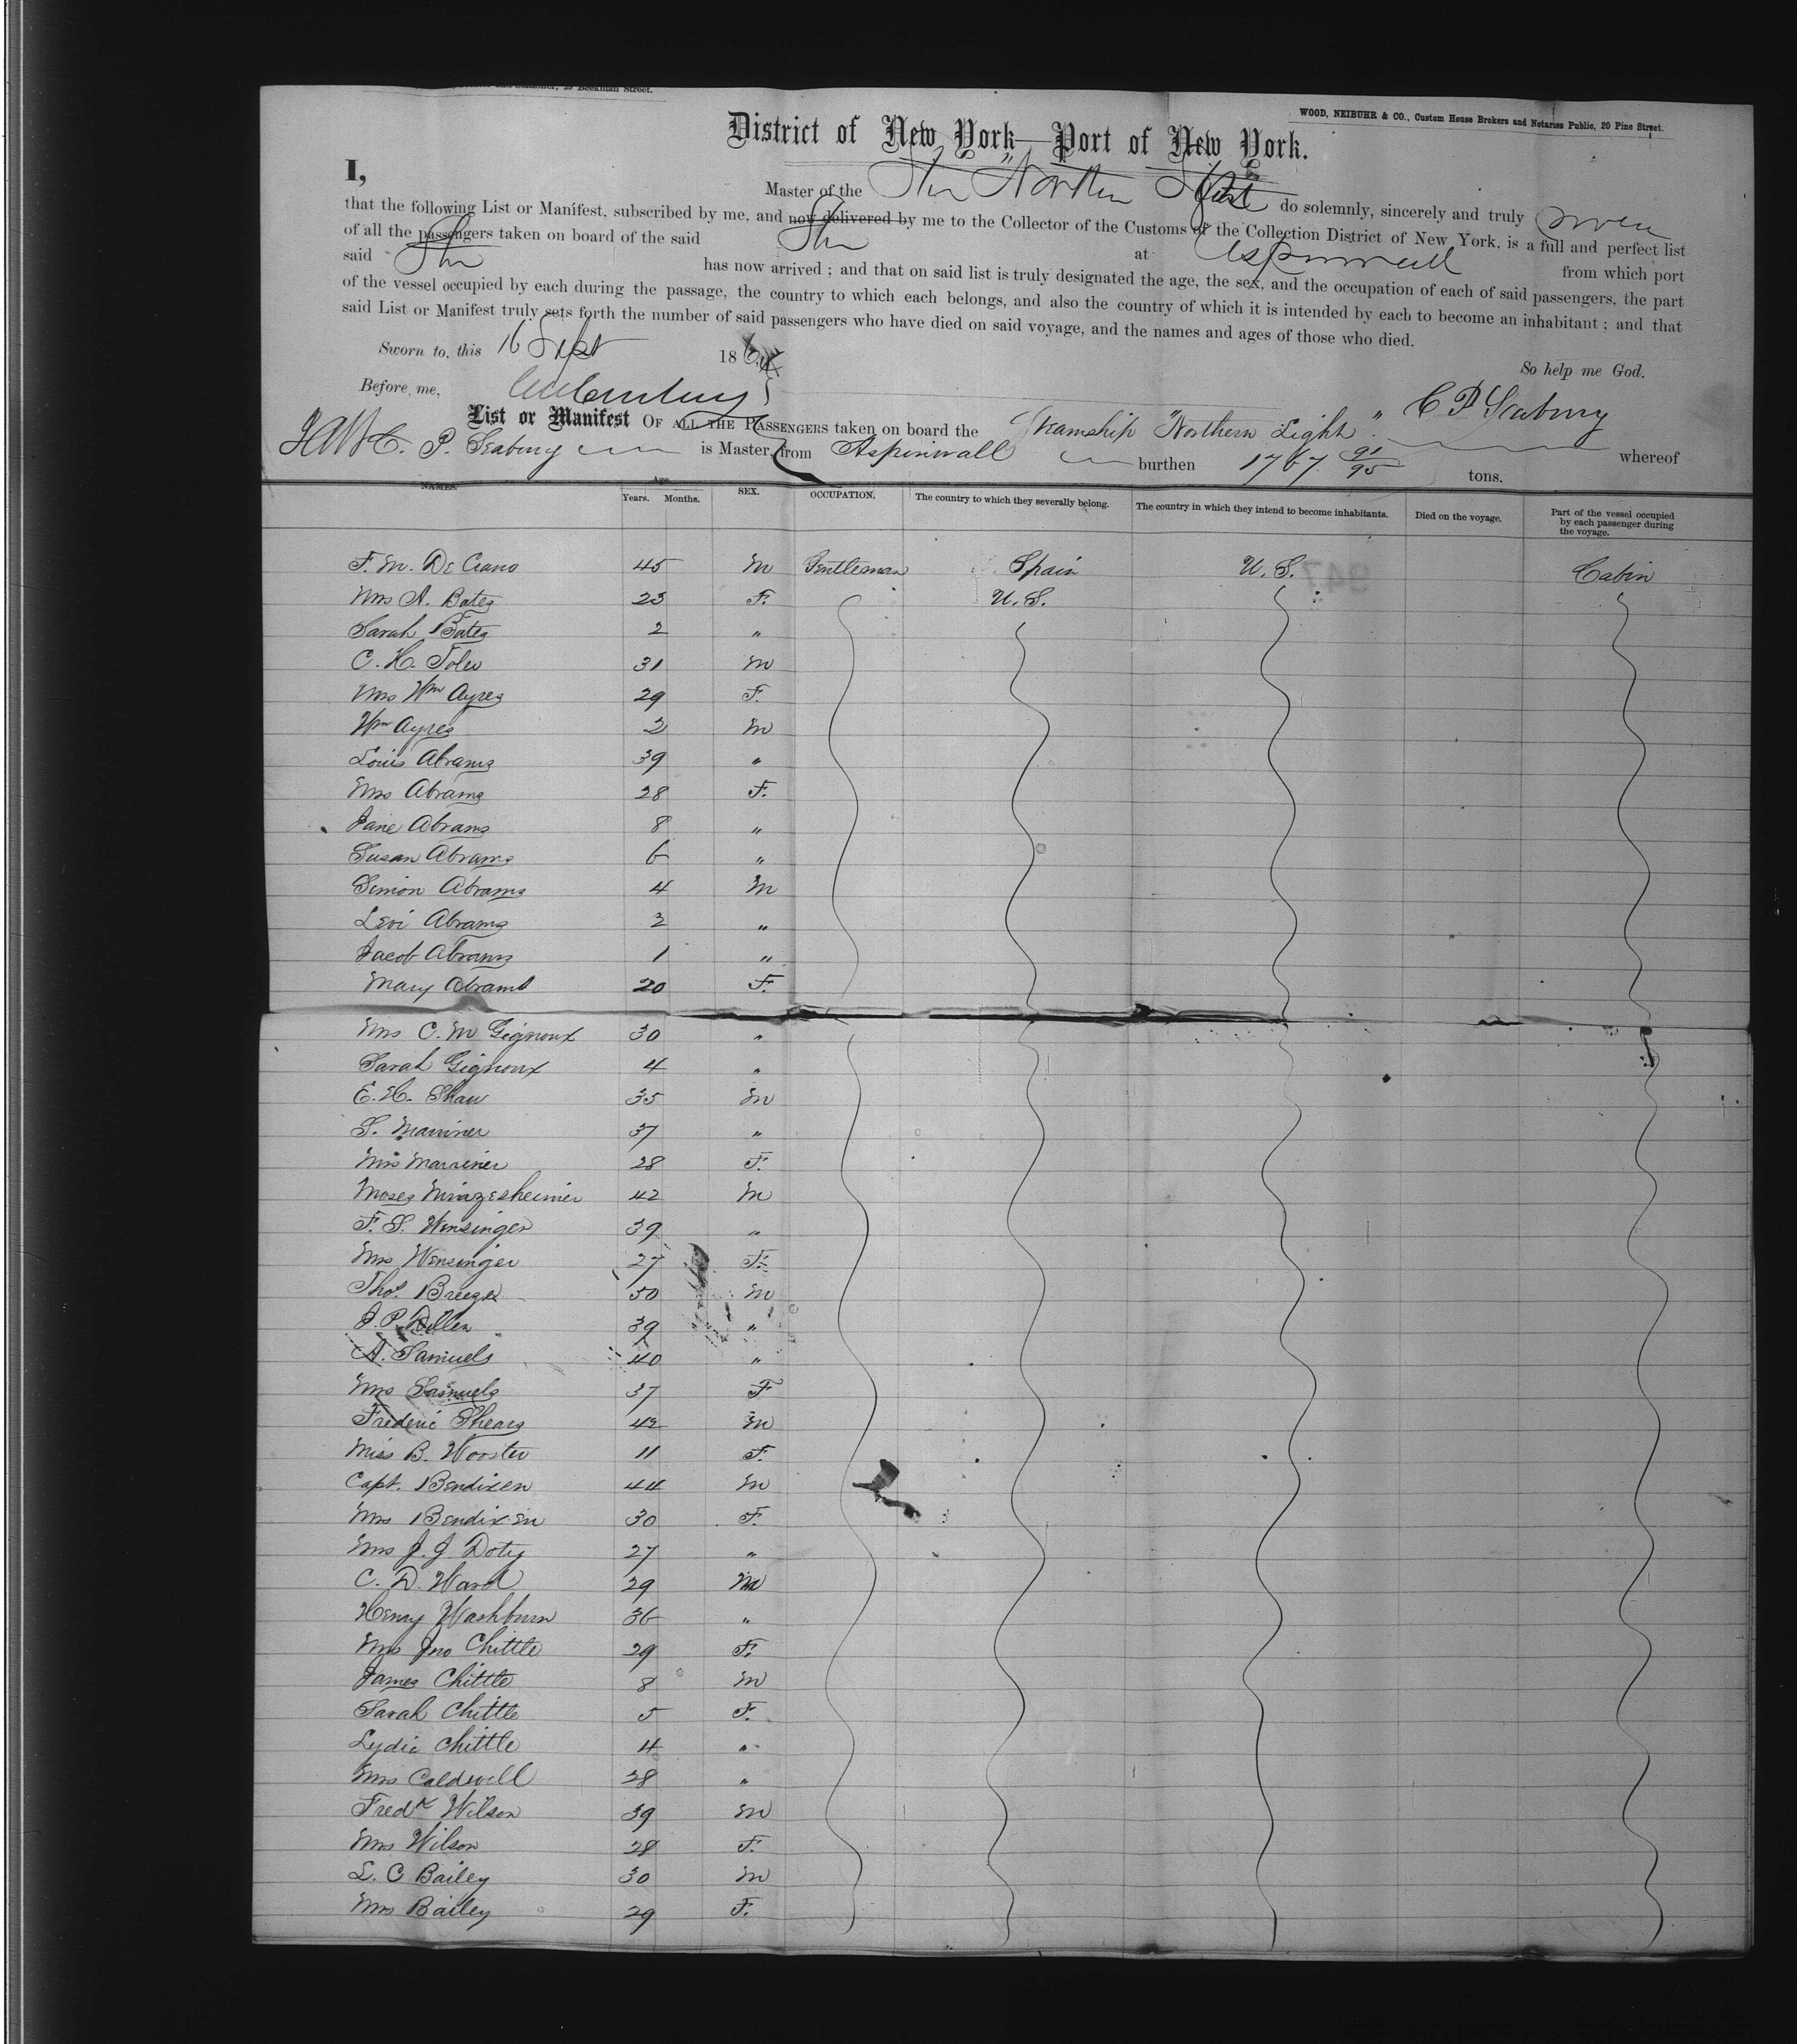 and Stationer, 29 Beekman Street.
WOOD, NEIBUHR & CO., Custom House Brokers and Notaries Public, 20 Pine Street.
District of New York—Port of New York.
I, Master of the Str "Northern Light do solemnly, sincerely and truly swear
that the following List or Manifest, subscribed by me, and now delivered by me to the Collector of the Customs of the Collection District of New York, is a full and perfect list
of all the passengers taken on board of the said Str at Aspinwall from which port
said Str has now arrived; and that on said list is truly designated the age, the sex, and the occupation of each of said passengers, the part
of the vessel occupied by each during the passage, the country to which each belongs, and also the country of which it is intended by each to become an inhabitant; and that
said List or Manifest truly sets forth the number of said passengers who have died on said voyage, and the names and ages of those who died.
Sworn to, this 16 Sept 186
So help me God.
Before me, C P Seabury
List or Manifest OF ALL THE PASSENGERS taken on board the Steamship "Northern Light" whereof
C. P. Seabury is Master, from Aspinwall burthen 1767 91/95 tons.
NAMES. Age Years. Months. SEX. OCCUPATION. The country to which they severally belong. The country in which they intend to become inhabitants. Died on the voyage. Part of the vessel occupied by each passenger during the voyage.
F. M. De Ceano 45 M Gentleman Spain U.S. Cabin
Mrs A. Bates 23 F. U.S.
Sarah Bates 2 "
C. H. 31 M
Mrs Wm Ayres 29 F.
Wm Ayres 2 M
Louis Abrams 39 "
Mrs Abrams 28 F.
Jane Abrams 8 "
Susan Abrams 6 "
Simon Abrams 4 M
Levi Abrams 2 "
Jacob Abrams 1 "
Mary Abrams 20 F.
Mrs C. M Gignoux 30 "
Sarah Gignoux 4 "
E. H. Shaw 35 M
S. Marriner 37 "
Mrs Marriner 28 F.
Moses Minzesheimer 42 M
F. S. Wensinger 39 "
Mrs Wensinger 27 F.
Thos. Breeze 50 M
J. P. Dillen 39 "
A. Samuels 40 "
Mrs Samuels 37 F
Frederic Shears 42 M
Miss B. Wooster 11 F.
Capt. Bendixen 44 M
Mrs Bendixen 30 F.
Mrs J. J. Doty 27 "
C. D. Ward 29 M
Henry Washburn 36 "
Mrs Jno Chittle 29 F.
James Chittle 8 M
Sarah Chittle 5 F.
Lydia Chittle 4 "
Mrs Caldwell 28 "
Fredk Wilson 39 M
Mrs Wilson 28 F.
L. C Bailey 30 M
Mrs Bailey 29 F.